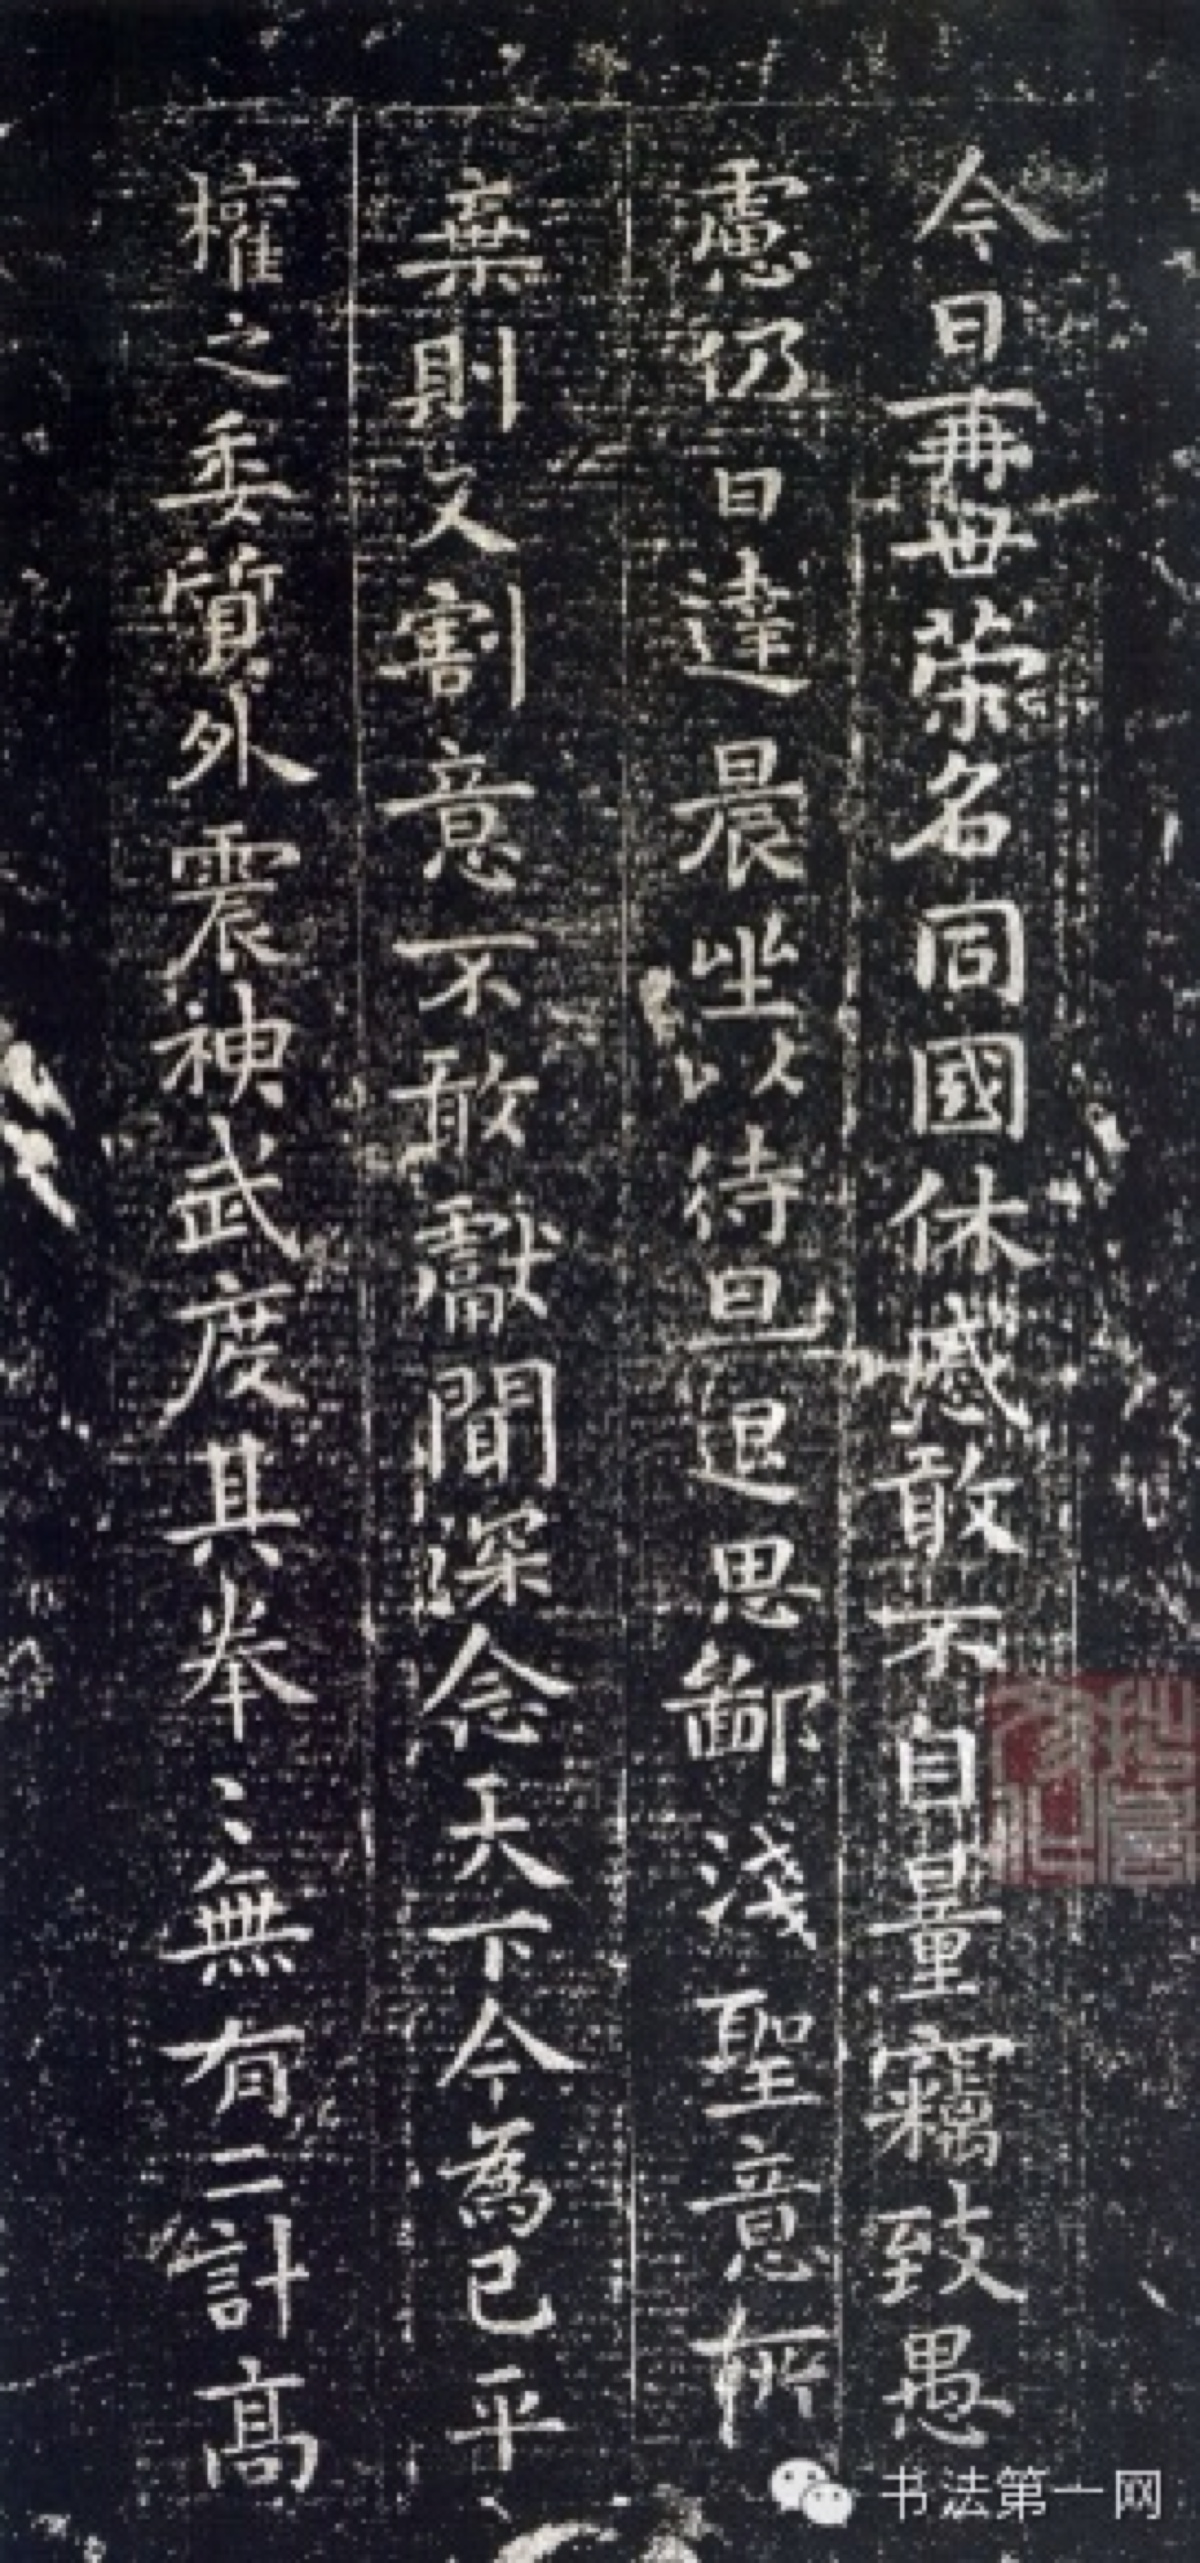 今日再世荣名同國休慼敢不自量竊致愚
慮仍日達晨坐以待旦退思鄙淺聖意所
棄則又割意不敢獻聞深念天下今為已平
權之委質外震神武度其拳〻無有二計高
书法第一网